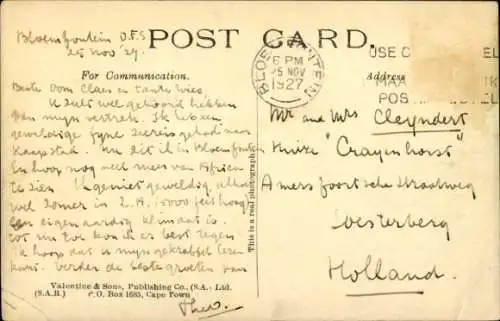 Bloemfontein O.F.S.
25 Nov '27.
POST CARD.
For Communication.
Address
BLOEMFONTEIN
6 PM
25 NOV
1927
USE
POS
Beste Oom Claes en tante Wies,
U zult wel gehoord hebben
van mijn vertrek. Ik heb een
geweldige fijne zeereis gehad naar
Kaapstad. Nu zit ik in Bloemfontein
En hoop nog veel meer van Afrika
te zien. Ik geniet geweldig, alhoewel
wel zomer in Z.A. (5000 feis hoog)
een eigenaardig klimaat is.
Tot nu toe kon ik er best tegen
Ik hoop dat u mijn gekrabbel lezen
kunt. Verder de beste groeten van
Theo.
Mr and Mrs Cleyndert
Huize "Crayenhorst"
Amersfoortsche Straatweg
Soesterberg
Holland.
This is a real photograph
Valentine & Sons, Publishing Co., (S.A.) Ltd.
(S.A.B.) P.O. Box 1685, Cape Town